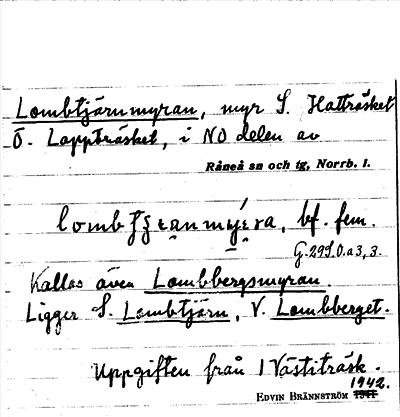 Lombtjärnmyran, myr S. Hatträsket
Ö. Lappträsket, i NO delen av
Råneå sn och tg, Norrb. l.
bf. fem.
G.2990.a3,3.
Kallas även Lombbergsmyran.
Ligger S. Lombtjärn, V. Lombberget.
Uppgiften från 1 Västiträsk.
1942.
EDVIN BRÄNNSTRÖM 1941